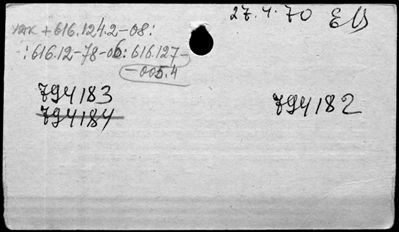 27.4.70 ЕВ
УДК +616.124.2-08:
:616.12-78-06:616.127-
-005.4
794183
794184
794182